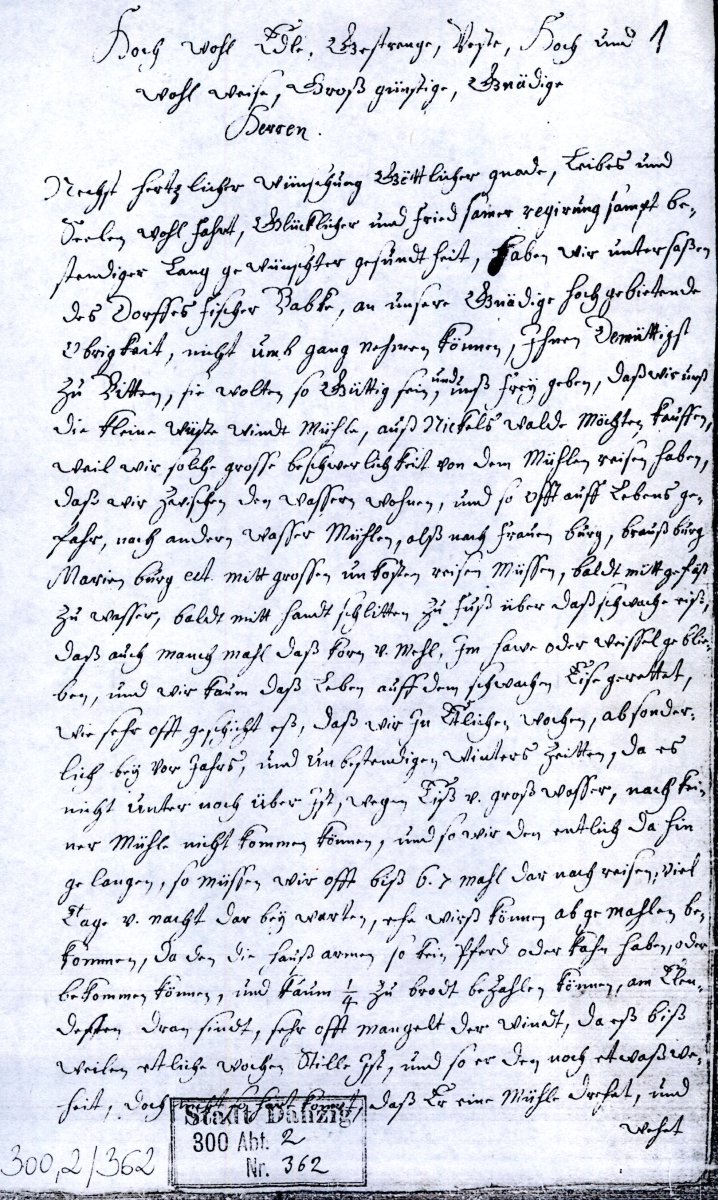 Hoch wohl Edle, Gestrenge, Veste, Hoch und 1
wohl weise, Groß günstige, Gnädige
Herren.
Nechst hertzlicher wünschung Göttlicher gnade, Leibes und
Seelen wohl fahrt, Glücklicher und fried samer regirung sampt be-
stendiger Lang gewünschter gesundtheit, haben wir untersaßen
des Dorffes fischer Babke, an unsere Gnädige hochgebietende
Obrigkeit, nicht umb gang nehmen können, Ihnen Demüttigst
zu Bitten, sie wolten so Güttig sein, und unß frey geben, daß wir unß
die kleine wüste windt Mühle, auß Nickels walde Möchten kauffen,
weil wir solche grosse beschwerlichkeit von dem Mühlen reisen haben,
daß wir zwischen den wassern wohnen, und so offt auff Lebens ge-
fahr, nach andern wasser Mühlen, alß nach frauen burg, brauß burg
Marien burg ect. mitt grossen unkosten reisen Müssen, baldt mitt gefäß
zu wasser, baldt mitt handt schlitten zu fuß über daß schwache eiß,
daß auch manch mahl daß korn v. Mehl, Im hawe oder weissel geblie-
ben, und wir kaum daß Leben auff dem schwachen Eise gerettet,
wie sehr offt geschicht eß, daß wir In Etlichen wochen, absonder-
lich bey vor Jahrs, und unbestendigen winters Zeitten, da es
nicht unter noch über Ist, wegen Eiß v. groß wasser, nach kei-
ner Mühle nicht kommen können, und so wir den entlich da hin
gelangen, so müssen wir offt biß 6. 7 mahl dar nach reisen, viel
Tage v. nacht dar bey warten, ehe wirß können abgemahlen be-
kommen, da den die hauß armen so kein Pferd oder kahn haben, oder
bekommen können, und kaum 1/4 zu brodt bezahlen können, am Elen-
desten dran sindt, sehr offt mangelt der windt, da eß biß
weilen etliche wochen Stille Ist, und so er den noch etwaß we-
heit, doch nicht so hart kompt, daß Er eine Mühle drehet, und
wehet
Stadt Danzig
300 Abt. 2
Nr. 362
300,2/362